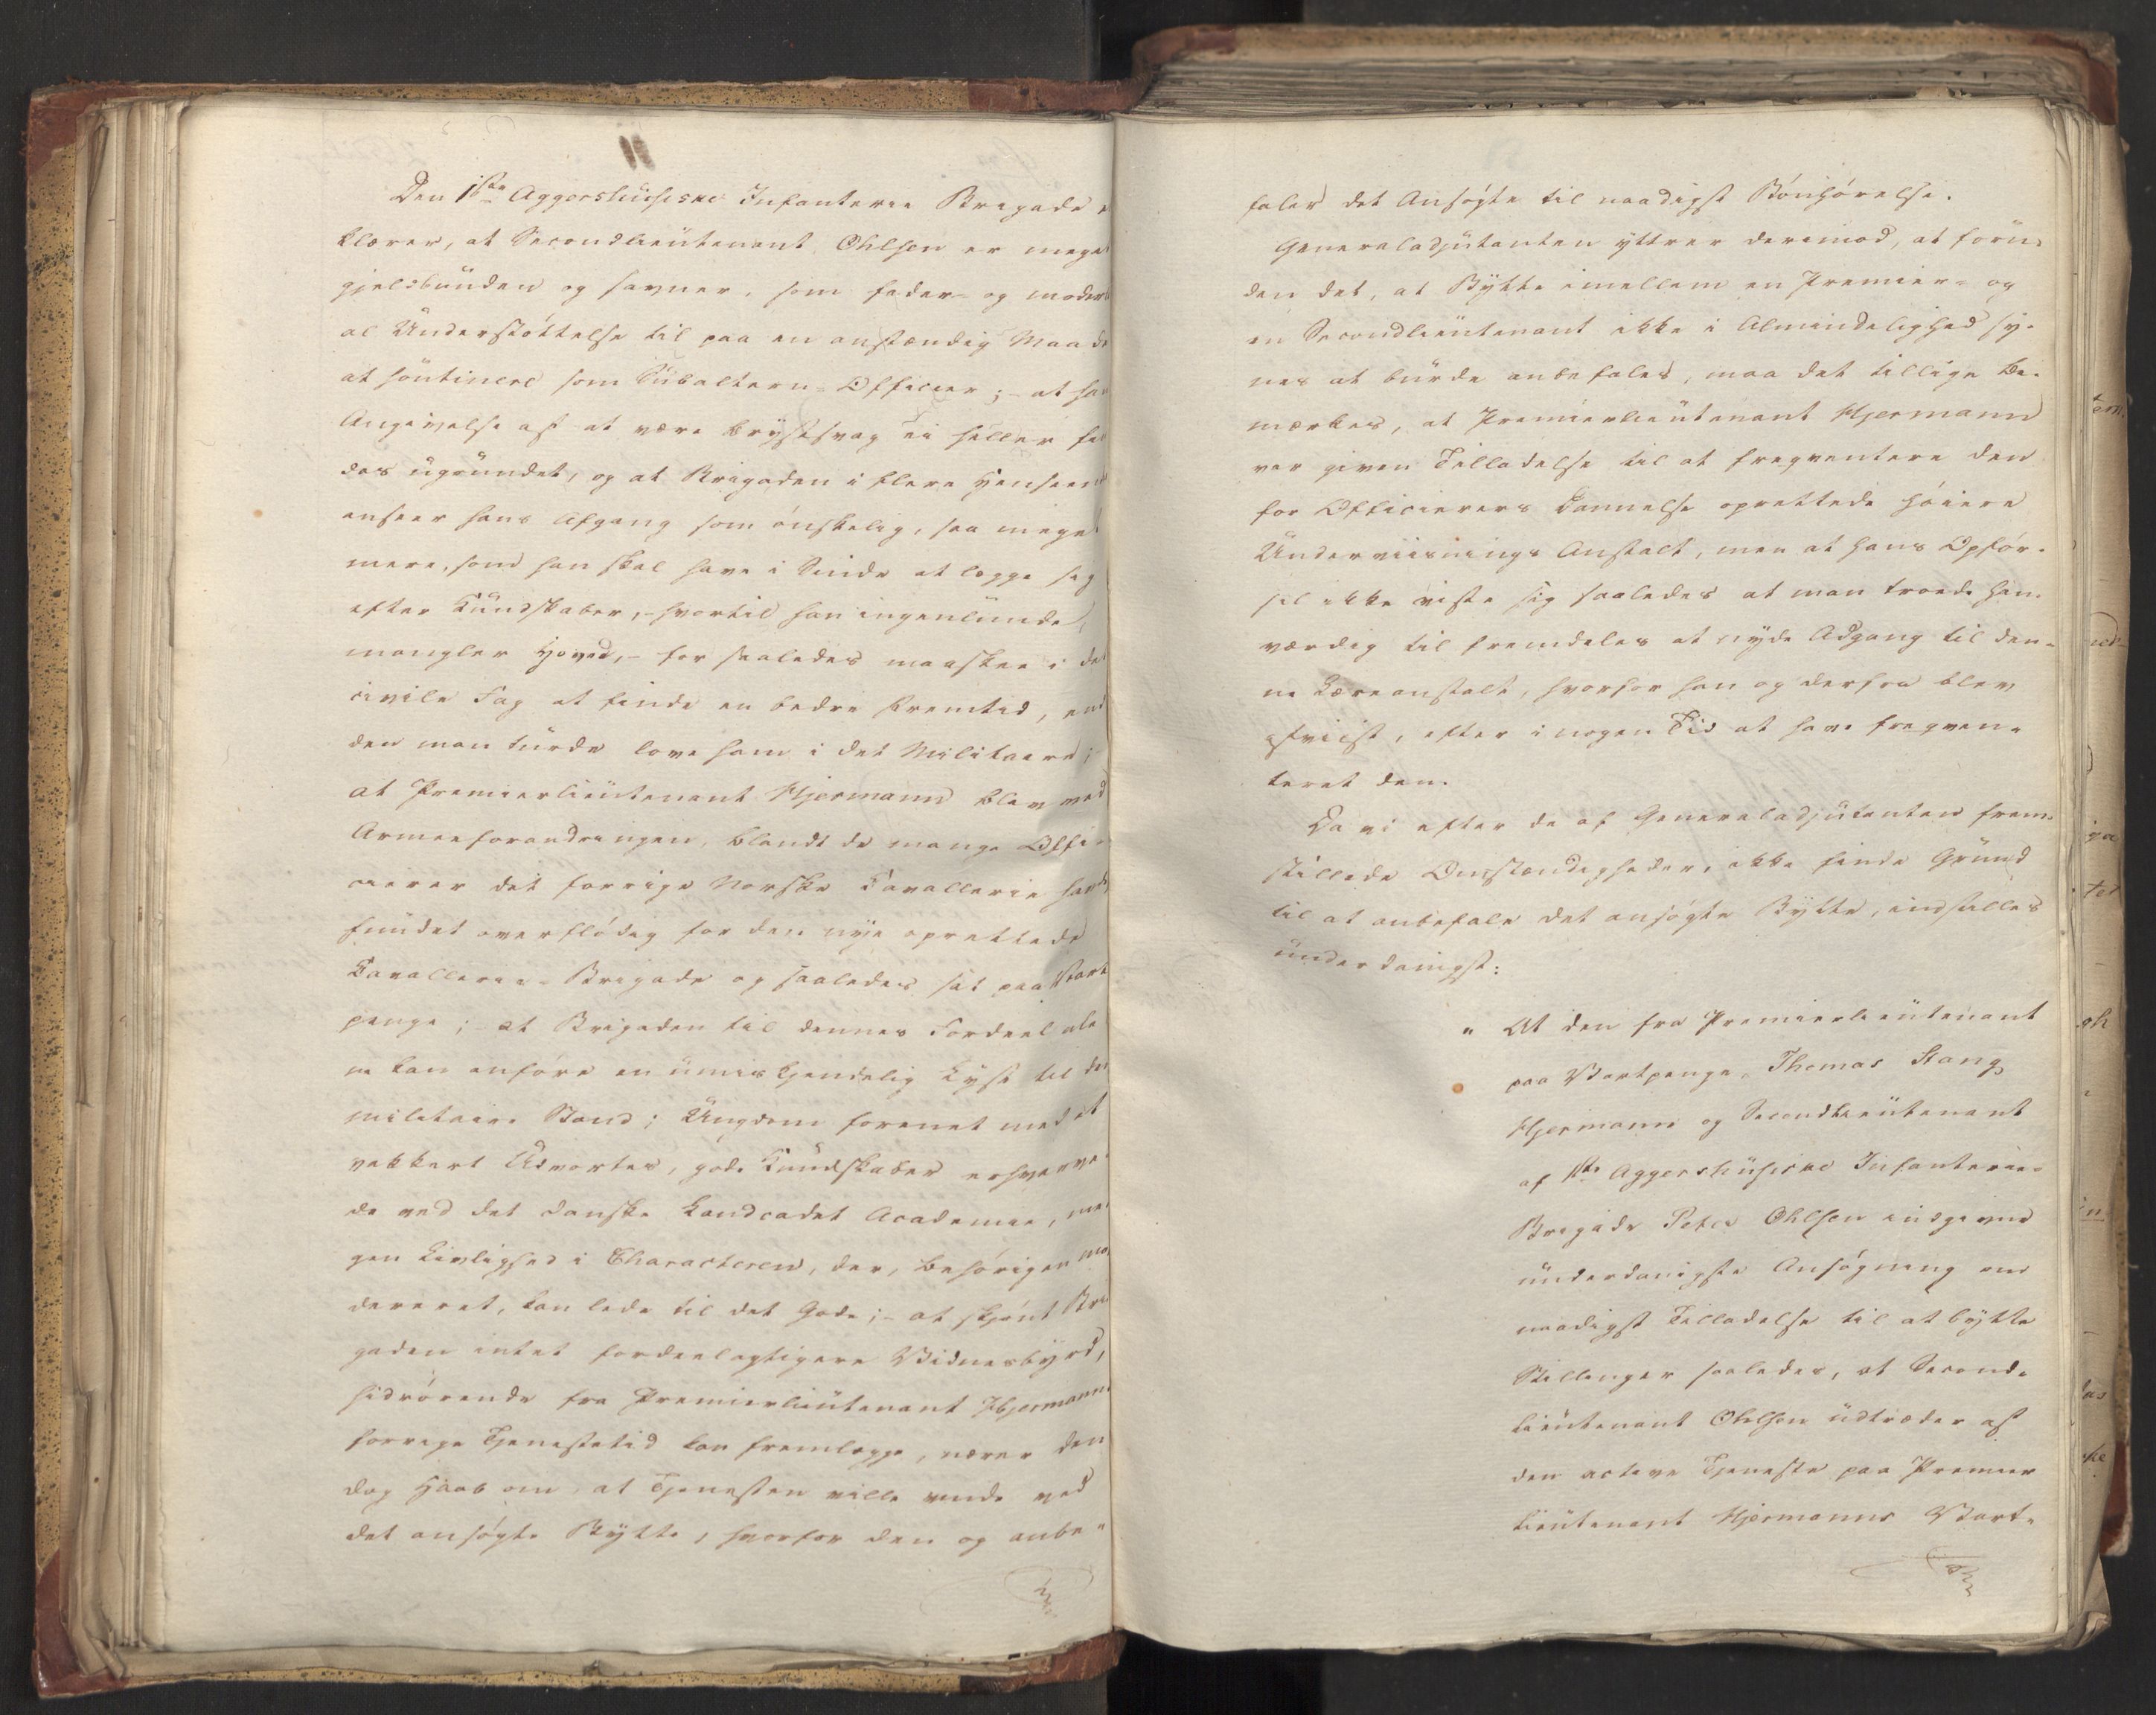 Den 1ste Aggershuusiske Infanterie Brigade er
klærer, at Secondlieutenant Ohlsen er meget
gjeldbunden og savner, som fader- og moderløs
al Understøttelse til paa en anstændig Maade
at continere som Subaltern-Officier; - at han
Angivelse af at være brystsvag ei heller fin
des ugrundet, og at Brigaden i flere Henseend
anseer hans Afgang som ønskelig, saa meget
mere, som han skal have i Sinde at lægge sig
efter Kundskaber, - hvortil han ingenlunde
mangler Hoved, - for saaledes maaskee i det
civile Fag at finde en bedre Fremtid, end
den man turde love ham i det Militaire;
at Premierlieutenant Hjermann blev ved
Armeeforandringen, blandt de mange Offi-
cierer det forrige Norske Cavallerie havde
fundet overflødig for den nye oprettede
Cavallerie-Brigade og saaledes sat paa Vart
penge; at Brigaden til dennes Fordeel ale
ne kan anføre en umiskjendelig Lyst til den
militaire Stand; Ungdom forenet med et
vakkert Udvortes, gode Kundskaber erhverve
de ved det danske Landcadet Academie, me
gen Livlighed i Characteren, der, behørigen mo
dereret, kan lede til det Gode; - at skjønt Bri
gaden intet fordeelagtigere Vidnesbyrd,
hidrørende fra Premierlieutenant Hjermanns
forrige Tjenestetid kan fremlægge, nærer den
dog Haab om, at Tjenesten ville vinde ved
det ansøgte Bytte, hvorfor den og anbe"
faler det Ansøgte til naadigst Bønhørelse.
Generaladjutanten yttrer derimod, at foru-
den det, at Bytte imellem en Premier- og
en Secondlieutenant ikke i Almindelighed sy-
nes at burde anbefales, maa det tillige be-
mærkes, at Premierlieutenant Hjermann
var given Tilladelse til at freqventere den
for Officierers Dannelse oprettede høiere
Underviisnings Anstalt, men at hans Opfør-
sel ikke viste sig saaledes at man troede ham
værdig til fremdeles at nyde Adgang til den-
ne Læreanstalt, hvorfor han og derfra blev
afviist, efter i nogen Tid at have freqven-
teret den.
Da vi efter de af Generaladjutanten frem-
stillede Omstændigheder, ikke finde Grund
til at anbefale det ansøgte Bytte, indstilles
underdanigst:
" At den fra Premierlieutenant
paa Vartpenge, Thomas Stang
Hjermann og Secondlieutenant
af 1ste Aggershuusiske Infanterie-
Brigade Peter Ohlsen indgivne
underdanigste Ansøgning om
naadigst Tilladelse til at bytte
Stillinger saaledes, at Second-
lieutenant Ohlsen udtræder af
den active Tjeneste paa Premier
lieutenant Hjermanns Vart-